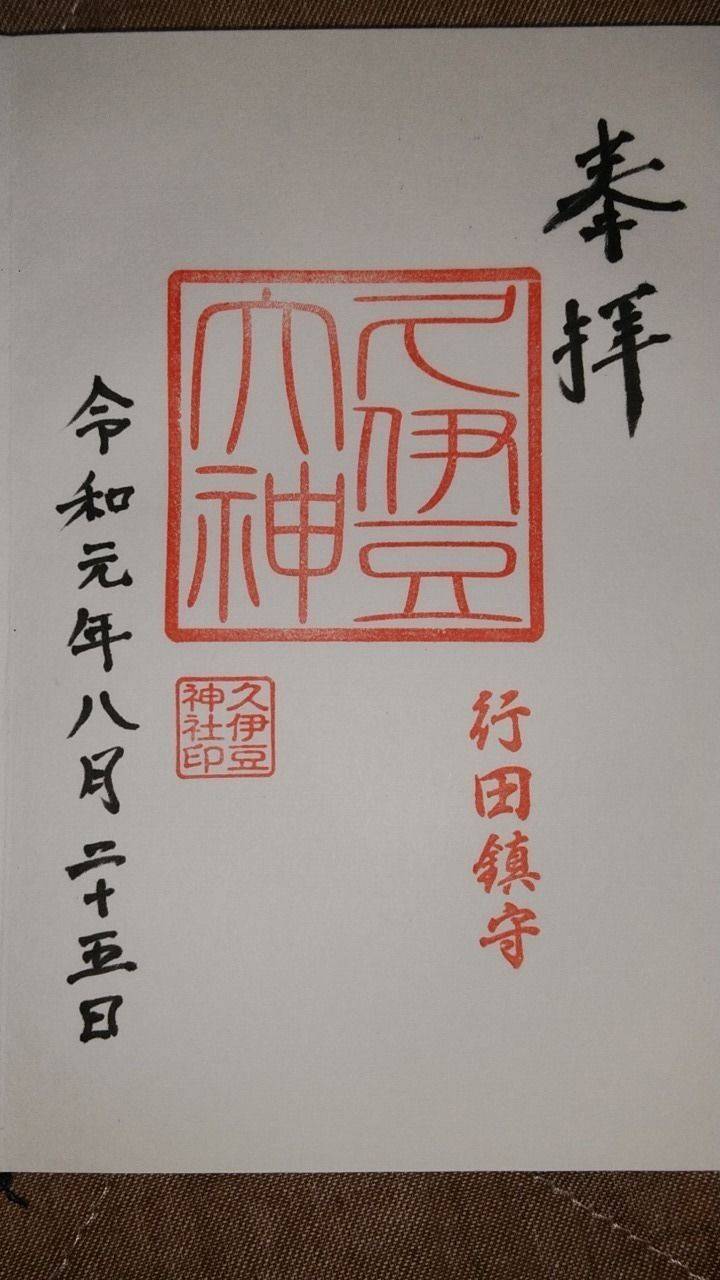 奉拝
久伊豆
大神
行田鎮守
久伊豆
神社印
令和元年八月二十五日